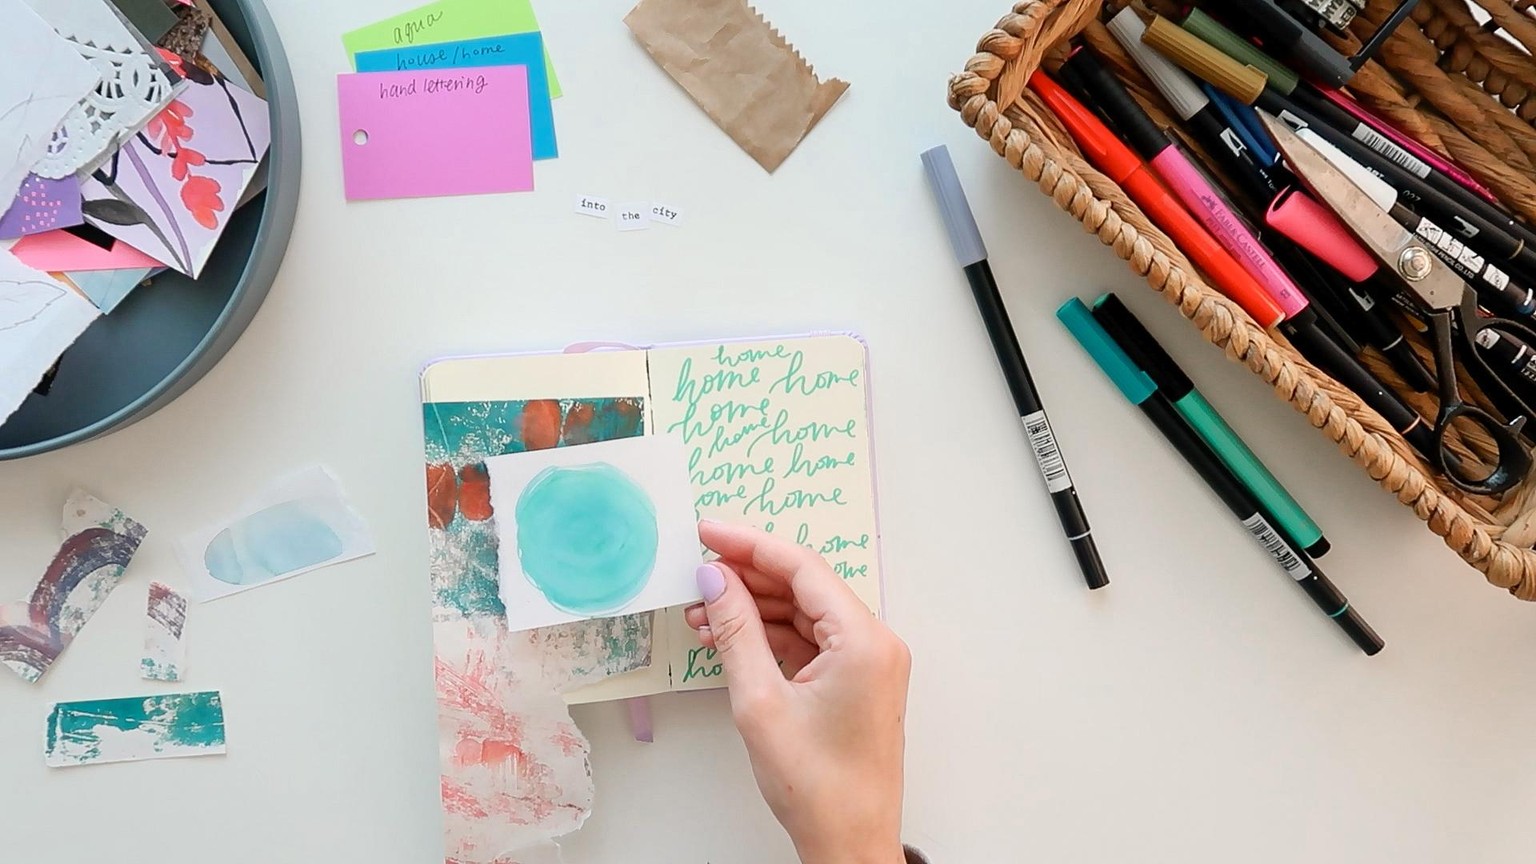 aqua
house/home
hand lettering
into the city
home
home home
home
home home
home home
home home
home
home
FABER-CASTELL